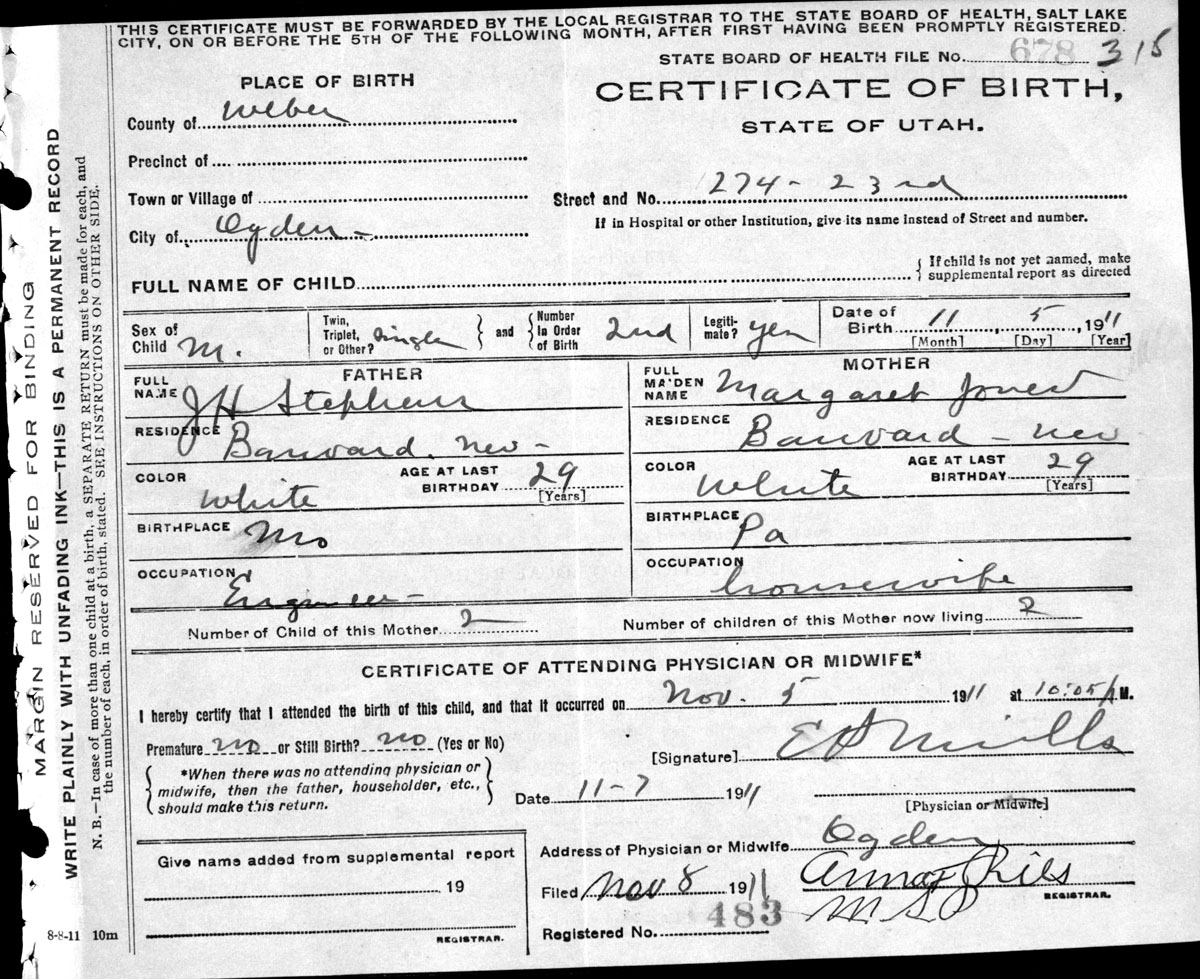 THIS CERTIFICATE MUST BE FORWARDED BY THE LOCAL REGISTRAR TO THE STATE BOARD OF HEALTH, SALT LAKE
CITY, ON OR BEFORE THE 5TH OF THE FOLLOWING MONTH, AFTER FIRST HAVING BEEN PROMPTLY REGISTERED.
STATE BOARD OF HEALTH FILE No. 678 315
PLACE OF BIRTH
CERTIFICATE OF BIRTH,
STATE OF UTAH.
County of Weber
Precinct of
Town or Village of
Street and No. 274-23rd
If in Hospital or other Institution, give its name instead of Street and number.
City of Ogden-
FULL NAME OF CHILD
{ If child is not yet named, make
supplemental report as directed
Sex of Child M.
Twin, Triplet, or Other? Single
and
Number In Order of Birth 2nd
Legiti-mate? Yes
Date of Birth 11, 5, 1911
[Month] [Day] [Year]
FATHER
MOTHER
FULL NAME J H Stephens
FULL MAIDEN NAME Margaret Jones
RESIDENCE Nev-
RESIDENCE - Nev
COLOR White
AGE AT LAST BIRTHDAY 29
[Years]
COLOR White
AGE AT LAST BIRTHDAY 29
[Years]
BIRTHPLACE Mo
BIRTHPLACE Pa
OCCUPATION Engineer-
OCCUPATION housewife
Number of Child of this Mother 2
Number of children of this Mother now living 2
CERTIFICATE OF ATTENDING PHYSICIAN OR MIDWIFE*
I hereby certify that I attended the birth of this child, and that it occurred on Nov. 5 1911 at 10:05 A.M.
Premature no or Still Birth? no (Yes or No)
[Signature] E P Mills
*When there was no attending physician or
midwife, then the father, householder, etc.,
should make this return.
Date 11-7 1911
[Physician or Midwife]
Give name added from supplemental report
19
REGISTRAR.
Address of Physician or Midwife Ogden
Filed Nov 8 1911
REGISTRAR.
483
Registered No.
8-8-11 10m
MARGIN RESERVED FOR BINDING
WRITE PLAINLY WITH UNFADING INK—THIS IS A PERMANENT RECORD
N. B.—In case of more than one child at a birth, a SEPARATE RETURN must be made for each, and
the number of each, in order of birth, stated. SEE INSTRUCTIONS ON OTHER SIDE.